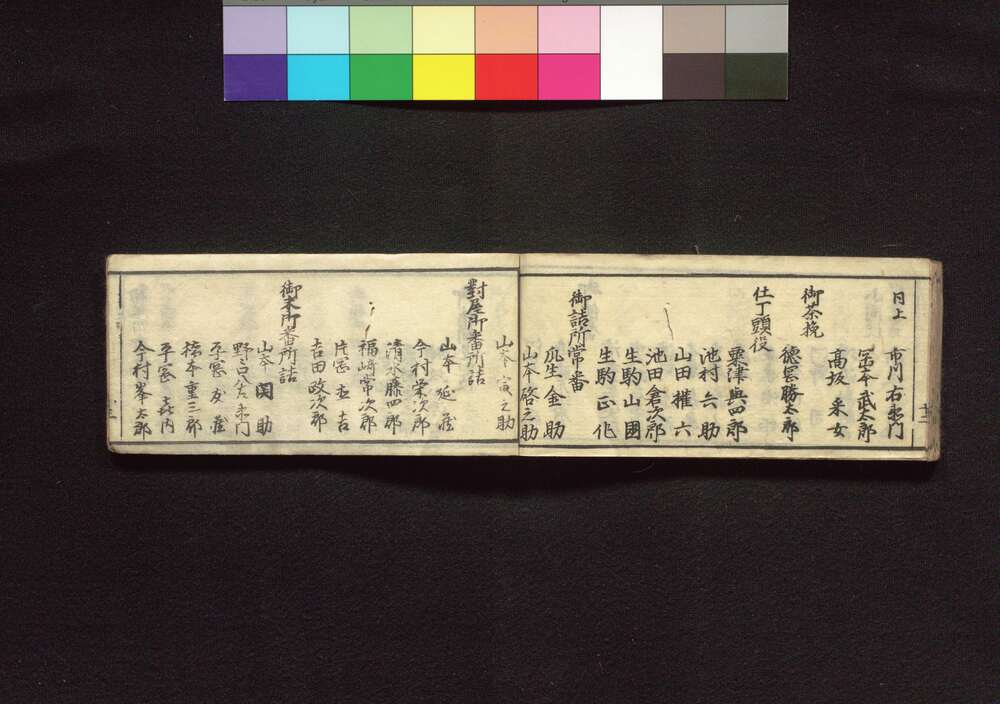 同上
市門右衛門
富本武太郎
高坂采女
御茶挽
徳冨勝太郎
仕丁頭役
粟津與四郎
池村兵助
山田権六
池田倉次郎
生駒山國
生駒正化
御詰所常番
瓜生金助
山本啓之助
山本寅之助
對屋御番所詰
山本延蔵
今村栄次郎
清水藤四郎
福嶋常次郎
片冨圭吉
吉田政次郎
御末所番所詰
山本関助
野口佐左衛門
平冨友蔵
橋本重三郎
平冨喜内
今村峯太郎